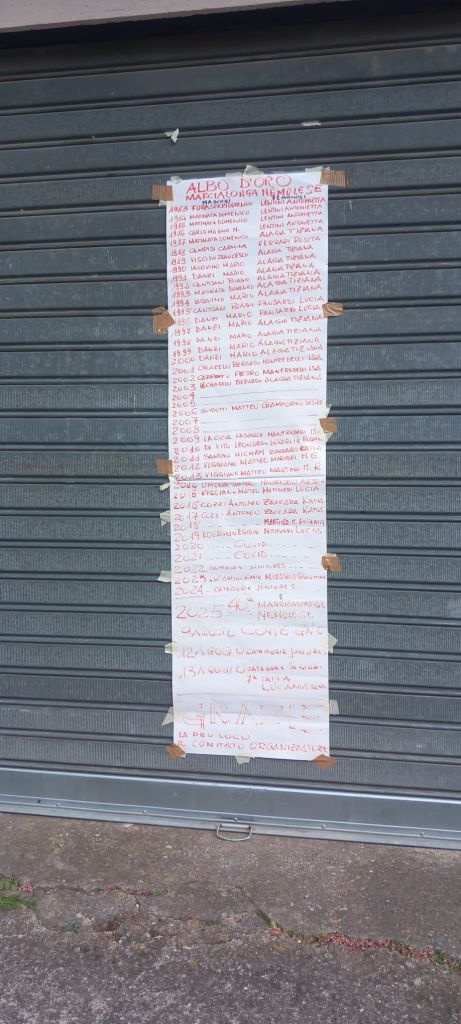 ALBO D'ORO
MARCIALONGA NEMOLESE
MASCHILI FEMMINILI
1983 DOMENICO LENTINI ANTONIETTA
1984 MATINATA DOMENICO LENTINI ANTONIETTA
1985 MATINATA DOMENICO LENTINI ANTONIETTA
1986 CARLOMAGNO N. LENTINI ANTONIETTA
1987 MATINATA DOMENICO FERRARI ROSITA
1988 CAMPISI CARMINE ALAGIA TIZIANA
1989 VISCIDI FRANCESCO ALAGIA TIZIANA
1990 IACOVINO MARIO ALAGIA TIZIANA
1991 DANZI MARIO ALAGIA TIZIANA
1992 CANTISANI BIAGIO ALAGIA TIZIANA
1993 MATINATA DOMENICO ALAGIA TIZIANA
1994 IACOVINO MARIO ALAGIA TIZIANA
1995 CANTISANI BIAGIO PANSARDI LUCIA
1996 DANZI MARIO PANSARDI LUCIA
1997 DANZI MARIO ALAGIA TIZIANA
1998 DANZI MARIO ALAGIA TIZIANA
1999 DANZI MARIO ALAGIA TIZIANA
2000 DANZI MARIO ALAGIA TIZIANA
2001 CHIAPELLI BERARDO MANFREDELLI ISA
2002 PIETRO MANFREDELLI ISA
2003 BERARDO ALAGIA TIZIANA
2004
2005
2006 GUIDOTTI MATTEO GIAMMARINO DESIRE
2007
2008
2009 IACCA PASQUALE MANFREDELLI ISA
2010 DE VITO LEONARDO
2011 SANTINO ZACCARA KATIA
2012 VIGGIANO MATTEO M.G.
2013 VIGGIANO MATTEO MARTINO M. R.
2014 LIMONGI
2015 VIGGIANO MATTEO LUCIA
2016 COZZI ANTONIO ZACCARA KATIA
2017 COZZI ANTONIO ZACCARA KATIA
2018 MARTINO M.
2019 LUCIA
2020 COVID
2021 COVID
2022 CATEGORIA JUNIORES
2023
2024 CATEGORIA JUNIORES
2025 40ª MARCIALONGA
NEMOLESE
9 AGOSTO
12 AGOSTO CATEGORIE JUNIORES
13 AGOSTO CATEGORIA SENIORES
7ª TAPPA
LUCANIA
GRAZIE
LA PRO LOCO
IL COMITATO ORGANIZZATORE